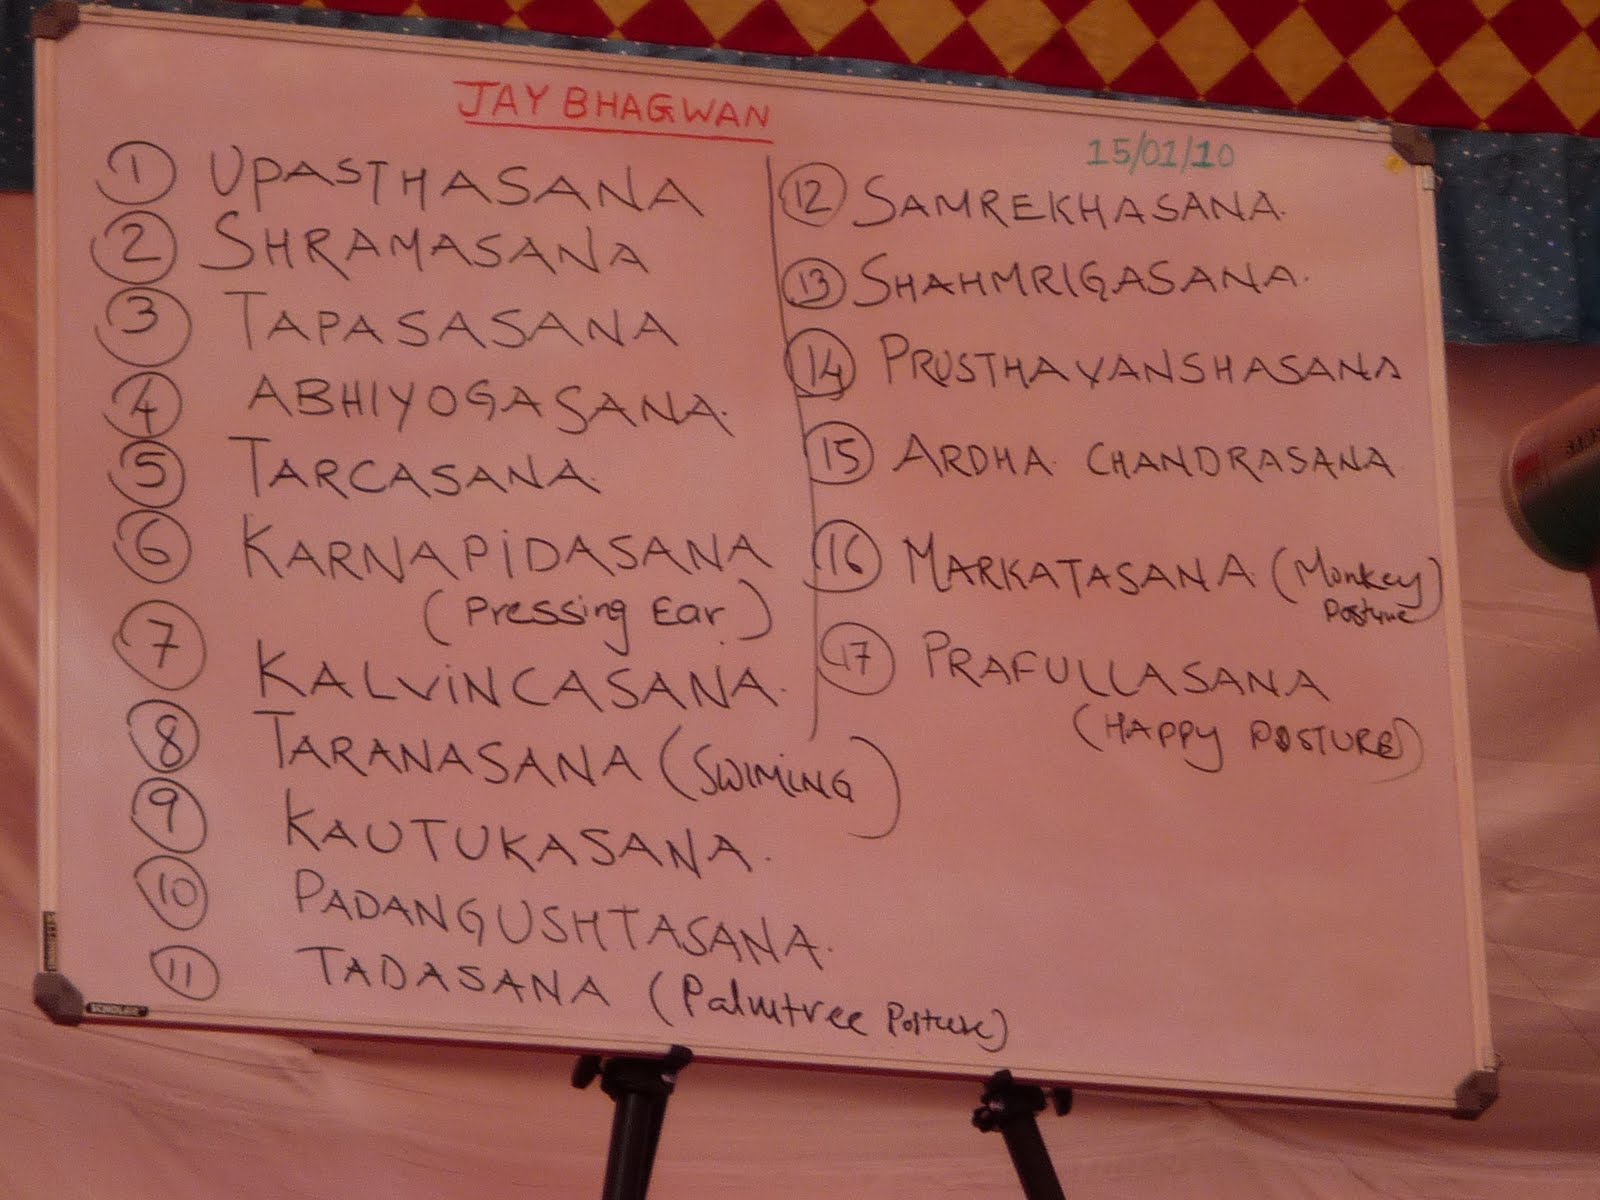 JAY BHAGWAN
15/01/10
1 UPASTHASANA
2 SHRAMASANA
3 TAPASASANA
4 ABHIYOGASANA.
5 TARCASANA.
6 KARNAPIDASANA
(Pressing Ear)
7 KALVINCASANA.
8 TARANASANA (SWIMING)
9 KAUTUKASANA.
10 PADANGUSHTASANA.
11 TADASANA (Palmtree Posture)
12 SAMREKHASANA.
13 SHAHMRIGASANA.
14 PRUSTHAVANSHASANA
15 ARDHA CHANDRASANA
16 MARKATASANA (Monkey
Posture)
17 PRAFULLASANA
(HAPPY POSTURE)